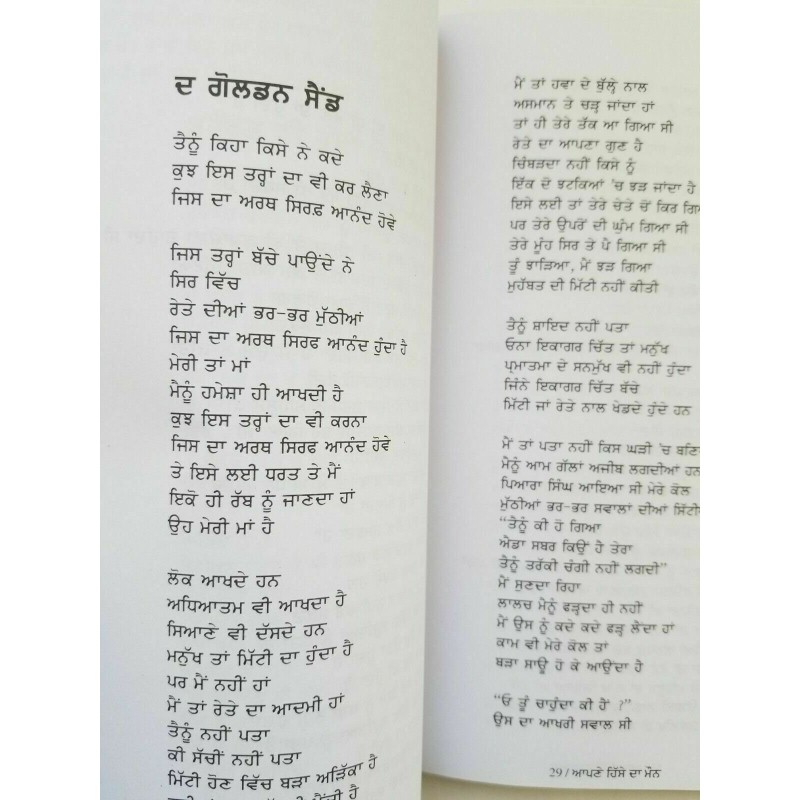 ਦ ਗੋਲਡਨ ਸੈਂਡ
ਤੈਨੂੰ ਕਿਹਾ ਕਿਸੇ ਨੇ ਕਦੇ
ਕੁਝ ਇਸ ਤਰ੍ਹਾਂ ਦਾ ਵੀ ਕਰ ਲੈਣਾ
ਜਿਸ ਦਾ ਅਰਥ ਸਿਰਫ਼ ਆਨੰਦ ਹੋਵੇ
ਜਿਸ ਤਰ੍ਹਾਂ ਬੱਚੇ ਪਾਉਂਦੇ ਨੇ
ਸਿਰ ਵਿੱਚ
ਰੇਤੇ ਦੀਆਂ ਭਰ-ਭਰ ਮੁੱਠੀਆਂ
ਜਿਸ ਦਾ ਅਰਥ ਸਿਰਫ ਆਨੰਦ ਹੁੰਦਾ ਹੈ
ਮੇਰੀ ਤਾਂ ਮਾਂ
ਮੈਨੂੰ ਹਮੇਸ਼ਾ ਹੀ ਆਖਦੀ ਹੈ
ਕੁਝ ਇਸ ਤਰ੍ਹਾਂ ਦਾ ਵੀ ਕਰਨਾ
ਜਿਸ ਦਾ ਅਰਥ ਸਿਰਫ ਆਨੰਦ ਹੋਵੇ
ਤੇ ਇਸੇ ਲਈ ਧਰਤ ਤੇ ਮੈਂ
ਇਕੋ ਹੀ ਰੱਬ ਨੂੰ ਜਾਣਦਾ ਹਾਂ
ਉਹ ਮੇਰੀ ਮਾਂ ਹੈ
ਲੋਕ ਆਖਦੇ ਹਨ
ਅਧਿਆਤਮ ਵੀ ਆਖਦਾ ਹੈ
ਸਿਆਣੇ ਵੀ ਦੱਸਦੇ ਹਨ
ਮਨੁੱਖ ਤਾਂ ਮਿੱਟੀ ਦਾ ਹੁੰਦਾ ਹੈ
ਪਰ ਮੈਂ ਨਹੀਂ ਹਾਂ
ਮੈਂ ਤਾਂ ਰੇਤੇ ਦਾ ਆਦਮੀ ਹਾਂ
ਤੈਨੂੰ ਨਹੀਂ ਪਤਾ
ਕੀ ਸੱਚੀਂ ਨਹੀਂ ਪਤਾ
ਮਿੱਟੀ ਹੋਣ ਵਿੱਚ ਬੜਾ ਅੜਿੱਕਾ ਹੈ
ਮੈਂ ਤਾਂ ਹਵਾ ਦੇ ਬੁੱਲ੍ਹੇ ਨਾਲ
ਅਸਮਾਨ ਤੇ ਚੜ੍ਹ ਜਾਂਦਾ ਹਾਂ
ਤਾਂ ਹੀ ਤੇਰੇ ਤੱਕ ਆ ਗਿਆ ਸੀ
ਰੇਤੇ ਦਾ ਆਪਣਾ ਗੁਣ ਹੈ
ਚਿੰਬੜਦਾ ਨਹੀਂ ਕਿਸੇ ਨੂੰ
ਇੱਕ ਦੋ ਝਟਕਿਆਂ 'ਚ ਝੜ ਜਾਂਦਾ ਹੈ
ਇਸੇ ਲਈ ਤਾਂ ਤੇਰੇ ਚੇਤੇ ਚੋਂ ਕਿਰ
ਪਰ ਤੇਰੇ ਉਪਰੋਂ ਦੀ ਘੁੰਮ ਗਿਆ ਸੀ
ਤੇਰੇ ਮੂੰਹ ਸਿਰ ਤੇ ਪੈ ਗਿਆ ਸੀ
ਤੂੰ ਝਾੜਿਆ, ਮੈਂ ਝੜ ਗਿਆ
ਮੁਹੱਬਤ ਦੀ ਮਿੱਟੀ ਨਹੀਂ ਕੀਤੀ
ਤੈਨੂੰ ਸ਼ਾਇਦ ਨਹੀਂ ਪਤਾ
ਓਨਾ ਇਕਾਗਰ ਚਿੱਤ ਤਾਂ ਮਨੁੱਖ
ਪ੍ਰਮਾਤਮਾ ਦੇ ਸਨਮੁਖ ਵੀ ਨਹੀਂ ਹੁੰਦਾ
ਜਿੰਨੇ ਇਕਾਗਰ ਚਿੱਤ ਬੱਚੇ
ਮਿੱਟੀ ਜਾਂ ਰੇਤੇ ਨਾਲ ਖੇਡਦੇ ਹੁੰਦੇ ਹਨ
ਮੈਂ ਤਾਂ ਪਤਾ ਨਹੀਂ ਕਿਸ ਘੜੀ 'ਚ
ਮੈਨੂੰ ਆਮ ਗੱਲਾਂ ਅਜੀਬ ਲਗਦੀਆਂ ਹਨ
ਪਿਆਰਾ ਸਿੰਘ ਆਇਆ ਸੀ ਮੇਰੇ ਕੋਲ
ਮੁੱਠੀਆਂ ਭਰ-ਭਰ ਸਵਾਲਾਂ ਦੀਆਂ
"ਤੈਨੂੰ ਕੀ ਹੋ ਗਿਆ
ਐਡਾ ਸਬਰ ਕਿਉਂ ਹੈ ਤੇਰਾ
ਤੈਨੂੰ ਤਰੱਕੀ ਚੰਗੀ ਨਹੀਂ ਲਗਦੀ"
ਮੈਂ ਸੁਣਦਾ ਰਿਹਾ
ਲਾਲਚ ਮੈਨੂੰ ਫੜ੍ਹਦਾ ਹੀ ਨਹੀਂ
ਮੈਂ ਉਸ ਨੂੰ ਕਦੇ ਕਦੇ ਫੜ੍ਹ ਲੈਂਦਾ ਹਾਂ
ਕਾਮ ਵੀ ਮੇਰੇ ਕੋਲ ਤਾਂ
ਬੜਾ ਸਾਊ ਹੋ ਕੇ ਆਉਂਦਾ ਹੈ
"ਓ ਤੂੰ ਚਾਹੁੰਦਾ ਕੀ ਹੈਂ ?"
ਉਸ ਦਾ ਆਖਰੀ ਸਵਾਲ ਸੀ
29 / ਆਪਣੇ ਹਿੱਸੇ ਦਾ ਮੌਨ